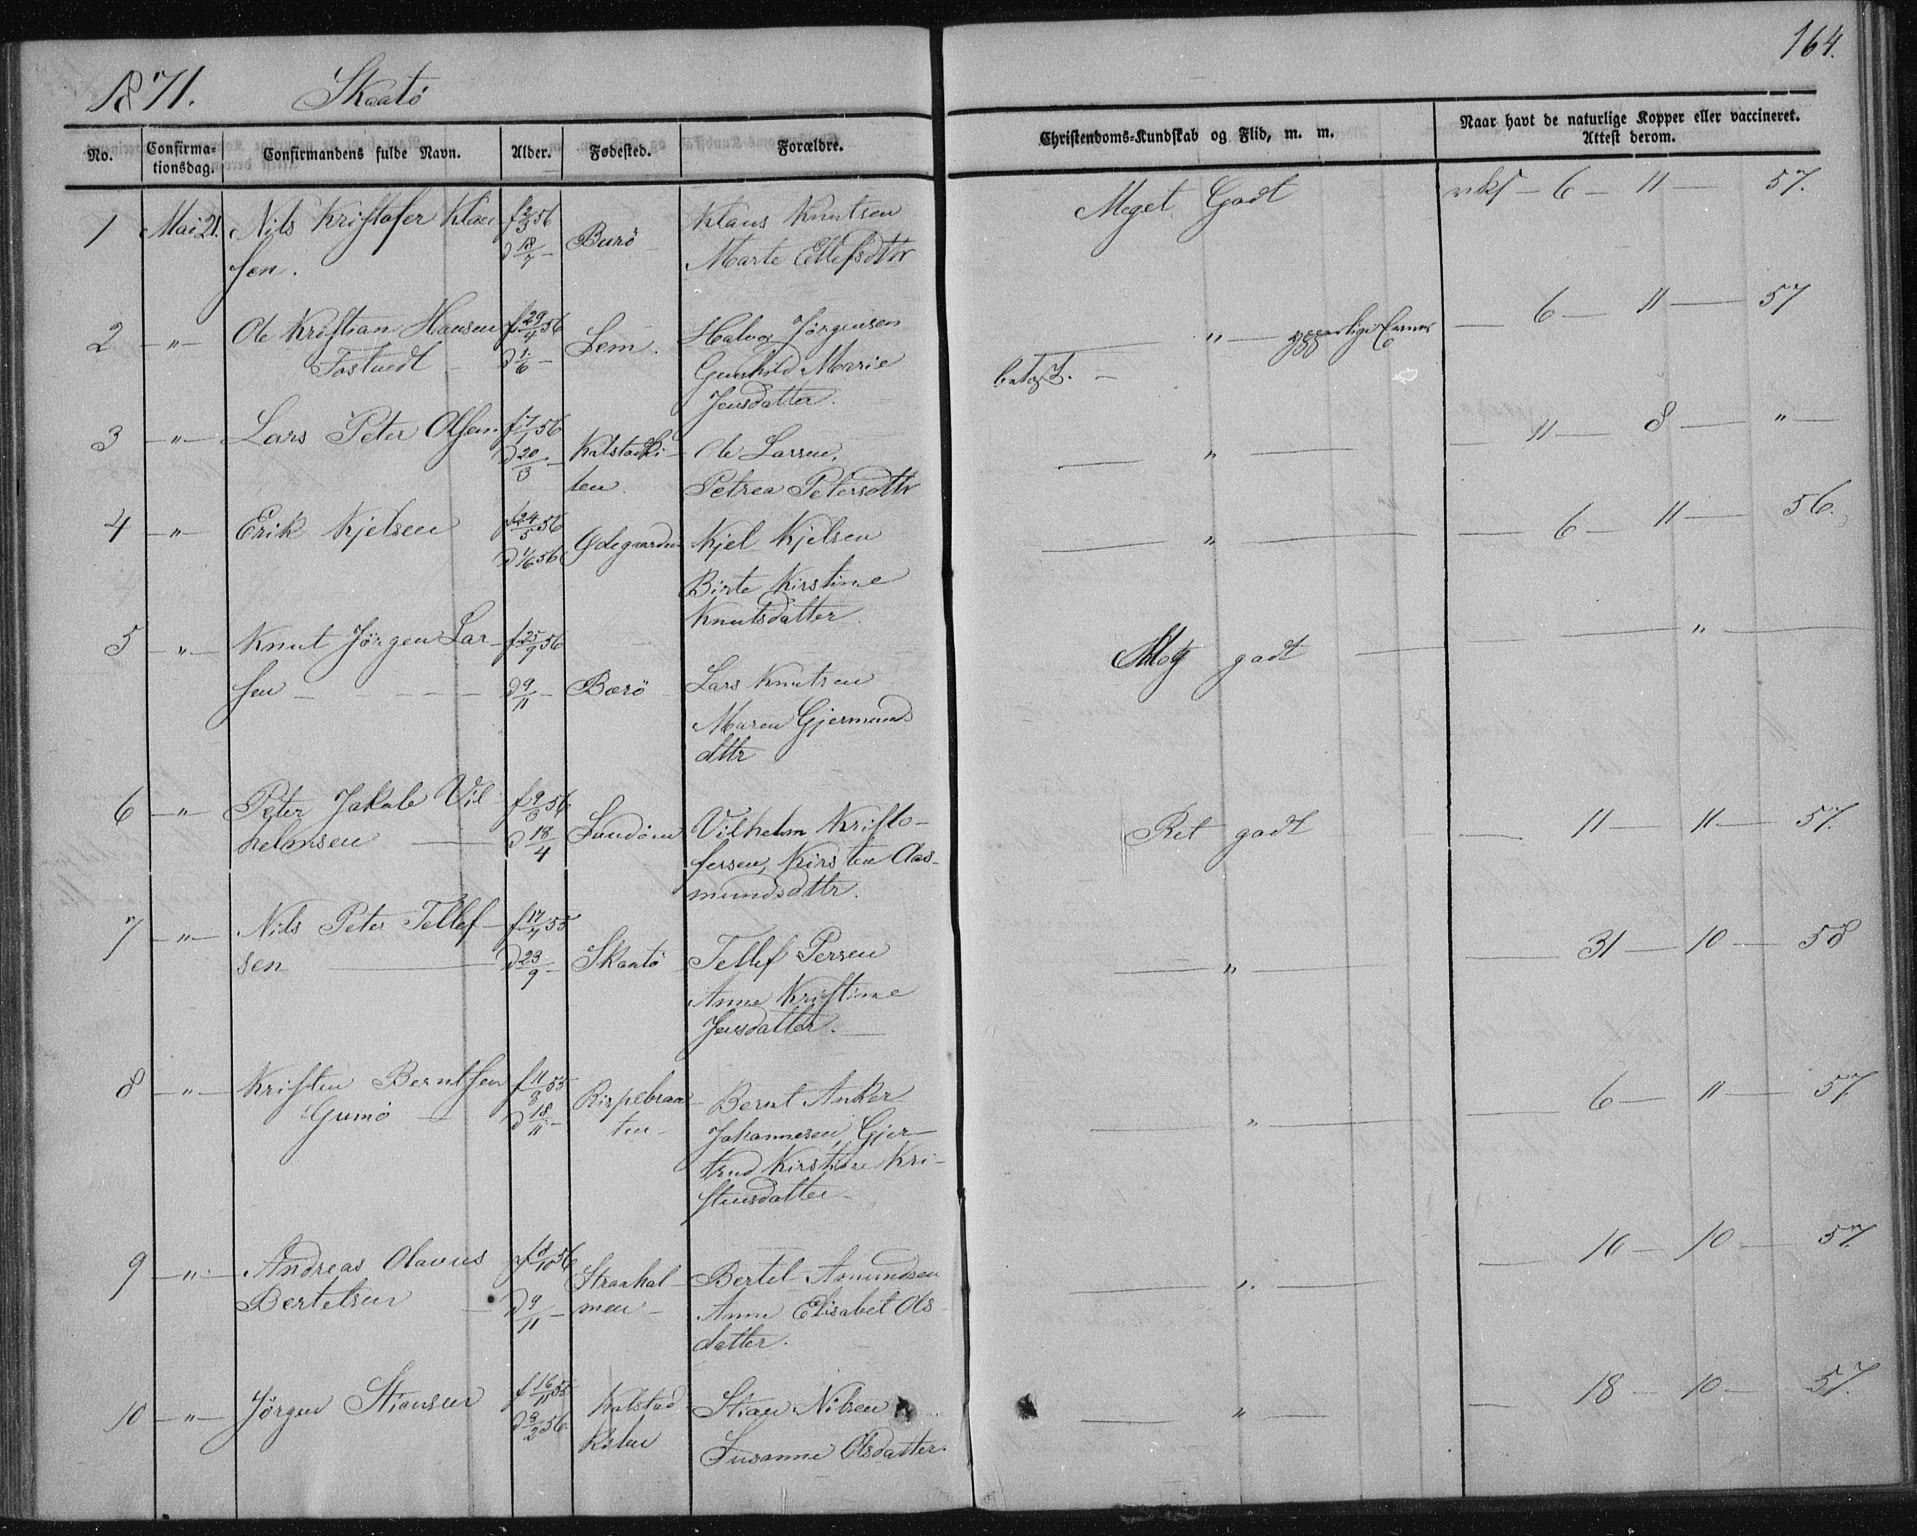 164.
1871. Skaatö
No. Confirmationsdag. Confirmandens fulde Navn. Alder. Fødested. Forældre. Christendoms-Kundskab og Flid, m. m. Naar havt de naturlige Kopper eller vaccineret. Attest derom.
1 Mai 21. Nils Kristofer Klau- f 2/3 56 Klaus Knutsen Meget Godt 6 – 11 – 57.
sen. d 13/7 – Barö – Marte Ellefsdttr
2 – " – Ole Kristian Hansen f 29/4 56 Lem. Halvor Jørgensen – " – 6 – 11 – 57
Tostvedt – d 1/6 – Gunhild Marie
Jensdatter.
3 – " – Lars Peter Olsen f 17/1 56 – " – 11 – 8 – " –
d 20/3 – Kalstadki- Ole Larsen,
len. Petrea Petersdttr
4 – " – Erik Kjelsen f 24/5 56 Ødegaarden Kjel Kjelsen – " – 6 – 11 – 56.
d 1/6 56 Birte Kirstine
Knutsdatter.
5 – " – Knut Jörgen Lar- f 25/9 56 Meg godt – " –
sen – d 9/11 – Barö Lars Knutsen
Maren Gjermunds
dttr
6 – " – Peter Jakob Vil- f 9/3 56 Vilhelm Kristo- Ret godt 11 – 11 – 57.
helmsen – d 18/4 fersen, Kirsten Aas-
mundsdttr.
7 – " – Nils Peter Tellef- f 17/7 55 – " – 31 – 10 – 58
sen – d 23/9 – Skaatö Tellef Persen
Anne Kristine
Jensdatter. –
8 – " – Kristen Berntsen f 11/8 55 Rispebraa- Bernt Anker – " – 6 – 11 – 57
Gumö – d 18/11 – ten – Johannesen, Gjer-
trud Kirstine Kri-
stensdatter –
9 – " – Andreas Olavus f 8/10 56 Straahol- Bertel Amundsen – " – 16 – 10 – 57.
Bertelsen – d 9/11 – men – Anne Elisabet Ols-
datter.
10 – " – Jörgen Stiansen f 16/11 55 Kalstad- Stian Nilsen – " – 18 – 10 – 57.
d 3/2 56 kilen Susanne Olsdatter.